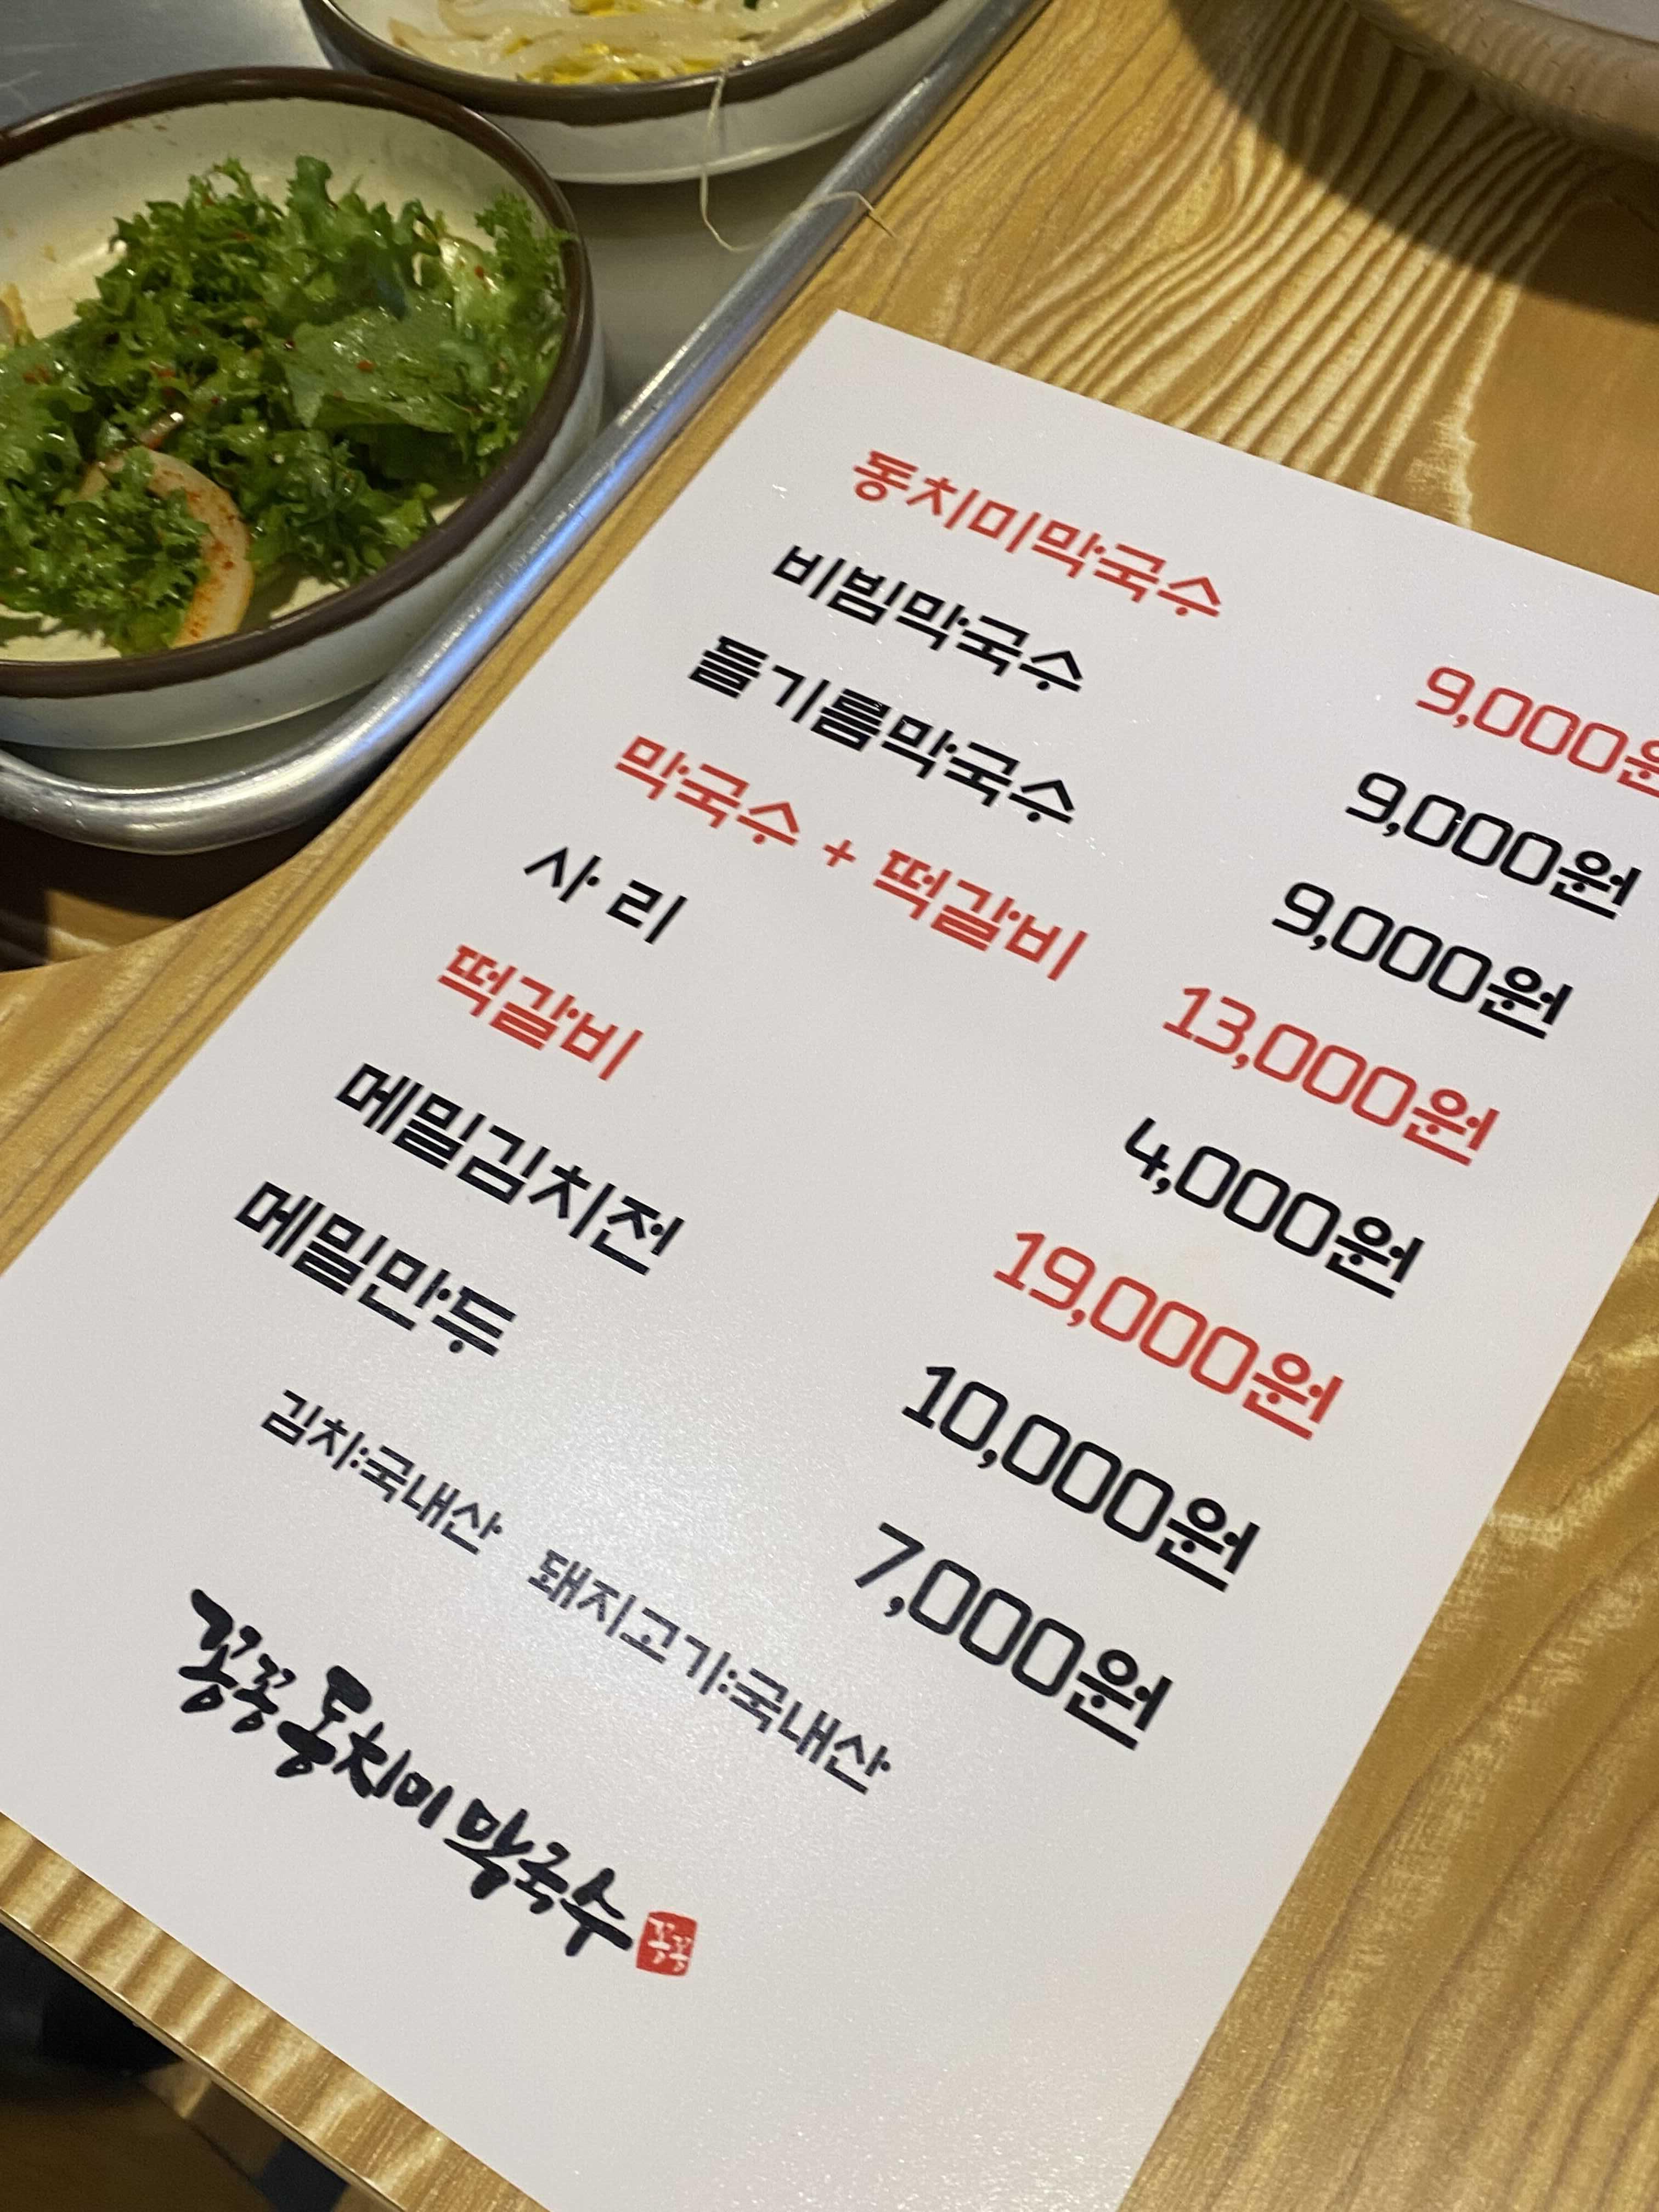 동치미막국수 9,000원
비빔막국수 9,000원
들기름막국수 9,000원
막국수 + 떡갈비 13,000원
사 리 4,000원
떡갈비 19,000원
메밀김치전 10,000원
메밀만두 7,000원
김치:국내산 돼지고기:국내산
꽁꽁 동치미 막국수
꽁꽁